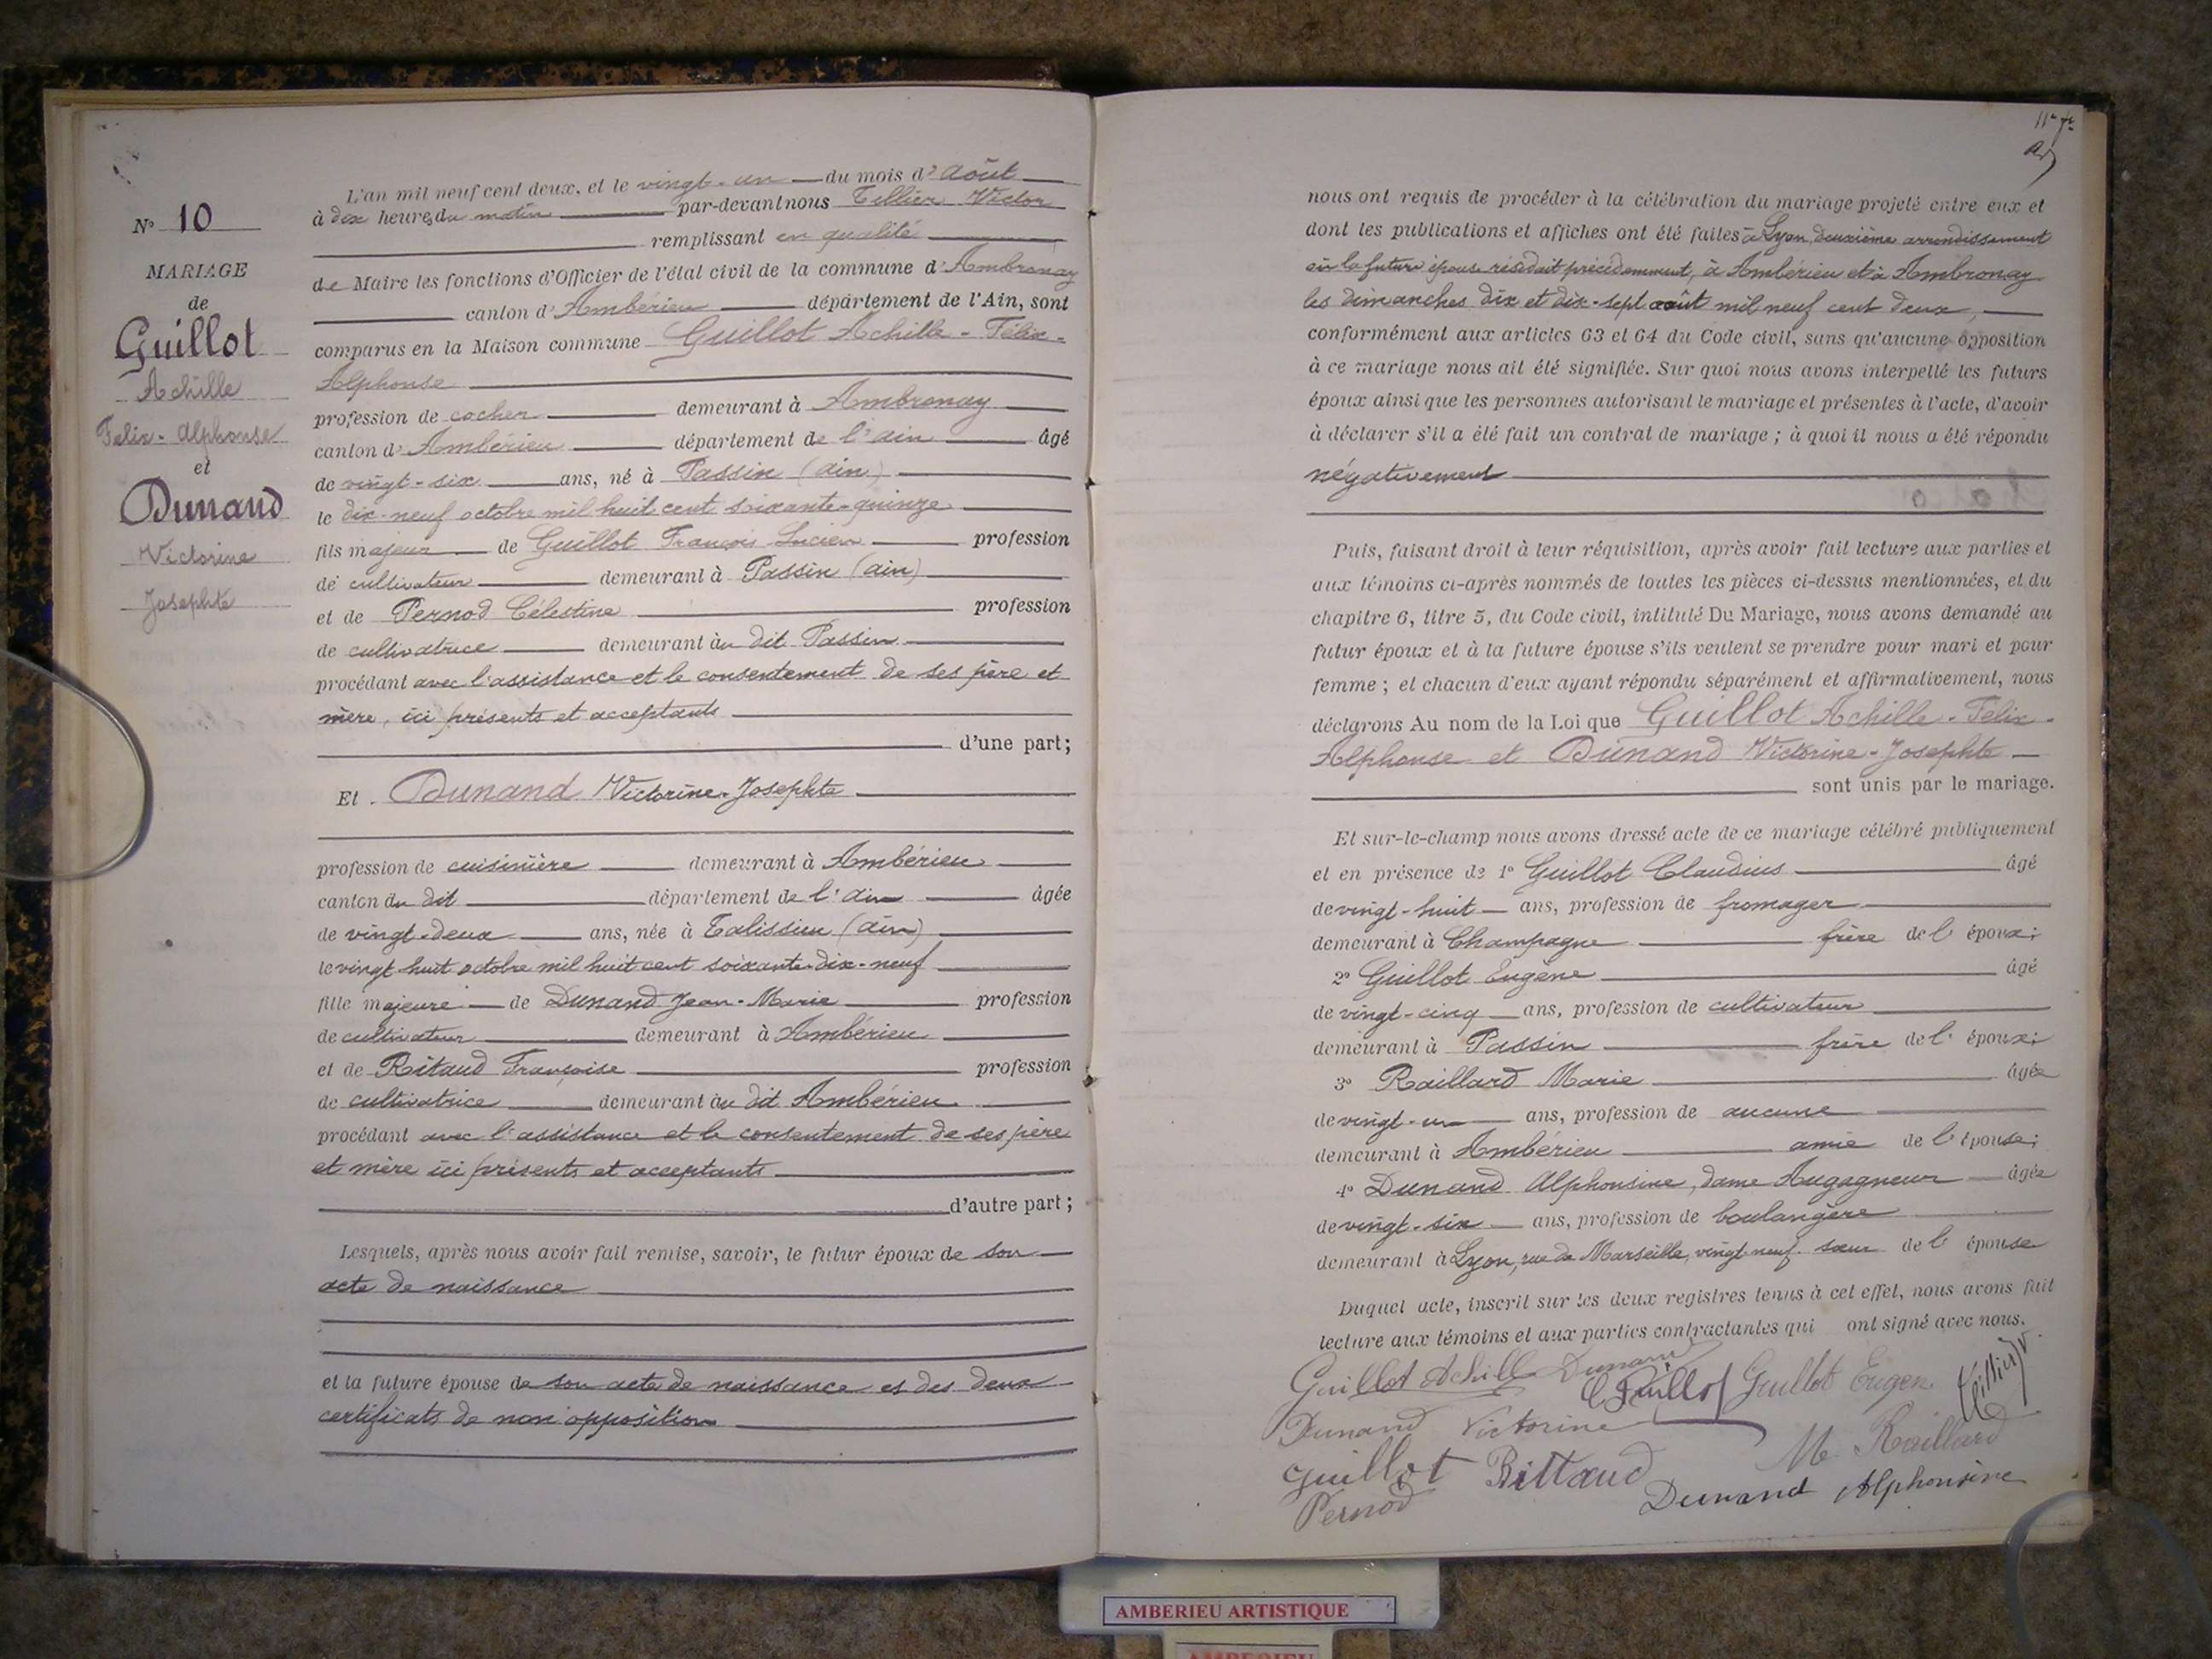 N° 10
MARIAGE
de
Guillot
Achille
Felix-Alphonse
et
Dunand
Victorine
Josephte
L'an mil neuf cent deux, et le vingt-un du mois d'Août
à dix heures du matin par-devant nous Tellier Victor
remplissant en qualité
de Maire les fonctions d'Officier de l'état civil de la commune d'Ambronay
canton d'Ambérieu département de l'Ain, sont
comparus en la Maison commune Guillot Achille-Félix-
Alphonse
profession de cocher demeurant à Ambronay
canton d'Ambérieu département de l'ain âgé
de vingt-six ans, né à Passin (ain)
le dix-neuf octobre mil huit cent soixante-quinze
fils majeur de Guillot François Lucien profession
de cultivateur demeurant à Passin (ain)
et de Pernod Célestine profession
de cultivatrice demeurant au dit Passin
procédant avec l'assistance et le consentement de ses père et
mère, ici présents et acceptants
d'une part;
Et Dunand Victorine-Josephte
profession de cuisinière demeurant à Ambérieu
canton du dit département de l'ain âgée
de vingt-deux ans, née à Talissieu (ain)
le vingt huit octobre mil huit cent soixante-dix-neuf
fille majeure de Dunand Jean-Marie profession
de cultivateur demeurant à Ambérieu
et de Ritaud Françoise profession
de cultivatrice demeurant au dit Ambérieu
procédant avec l'assistance et le consentement de ses père
et mère ici présents et acceptants
d'autre part;
Lesquels, après nous avoir fait remise, savoir, le futur époux de son
acte de naissance
et la future épouse de son acte de naissance et des deux
certificats de non opposition
nous ont requis de procéder à la célébration du mariage projeté entre eux et
dont les publications et affiches ont été faites à Lyon, deuxième arrondissement
où la future épouse résidait précédemment, à Ambérieu et à Ambronay
les dimanches dix et dix-sept août mil neuf cent deux,
conformément aux articles 63 et 64 du Code civil, sans qu'aucune opposition
à ce mariage nous ait été signifiée. Sur quoi nous avons interpellé les futurs
époux ainsi que les personnes autorisant le mariage et présentes à l'acte, d'avoir
à déclarer s'il a été fait un contrat de mariage; à quoi il nous a été répondu
négativement
Puis, faisant droit à leur réquisition, après avoir fait lecture aux parties et
aux témoins ci-après nommés de toutes les pièces ci-dessus mentionnées, et du
chapitre 6, titre 5, du Code civil, intitulé Du Mariage, nous avons demandé au
futur époux et à la future épouse s'ils veulent se prendre pour mari et pour
femme; et chacun d'eux ayant répondu séparément et affirmativement, nous
déclarons Au nom de la Loi que Guillot Achille-Felix-
Alphonse et Dunand Victorine-Josephte
sont unis par le mariage.
Et sur-le-champ nous avons dressé acte de ce mariage célébré publiquement
et en présence de 1° Guillot Claudius âgé
de vingt-huit ans, profession de fromager
demeurant à Champagne frère de l'époux;
2° Guillot Eugène âgé
de vingt-cinq ans, profession de cultivateur
demeurant à Passin frère de l'époux;
3° Raillard Marie âgée
de vingt-un ans, profession de aucune
demeurant à Ambérieu amie de l'épouse;
4° Dunand Alphonsine, dame Augagneur âgée
de vingt-six ans, profession de boulangère
demeurant à Lyon, rue de Marseille, vingt neuf. sœur de l'épouse
Duquel acte, inscrit sur les deux registres tenus à cet effet, nous avons fait
lecture aux témoins et aux parties contractantes qui ont signé avec nous.
Guillot Achille Dunand
C Guillot Guillot Eugen
Dunand Victorine
M Raillard
Guillot Rittaud
Dunand Alphonsine
Pernod
AMBERIEU ARTISTIQUE
AMBERIEU